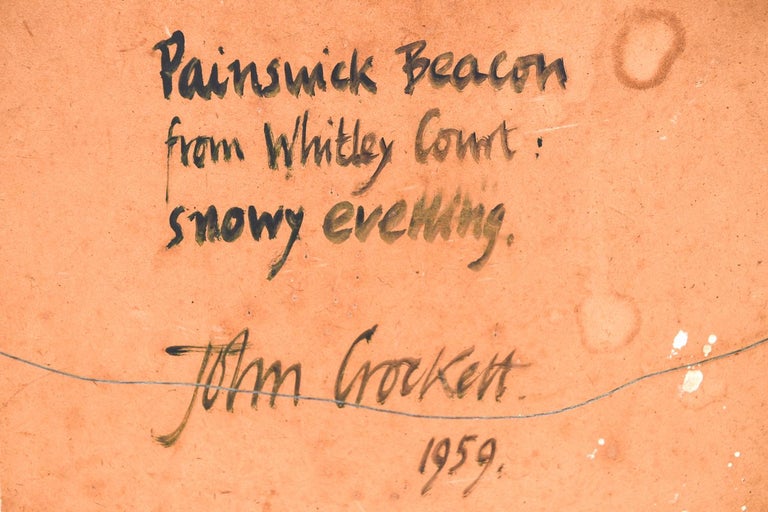 Painswick Beacon
from Whitley Court :
snowy evening.
John Crockett.
1959.